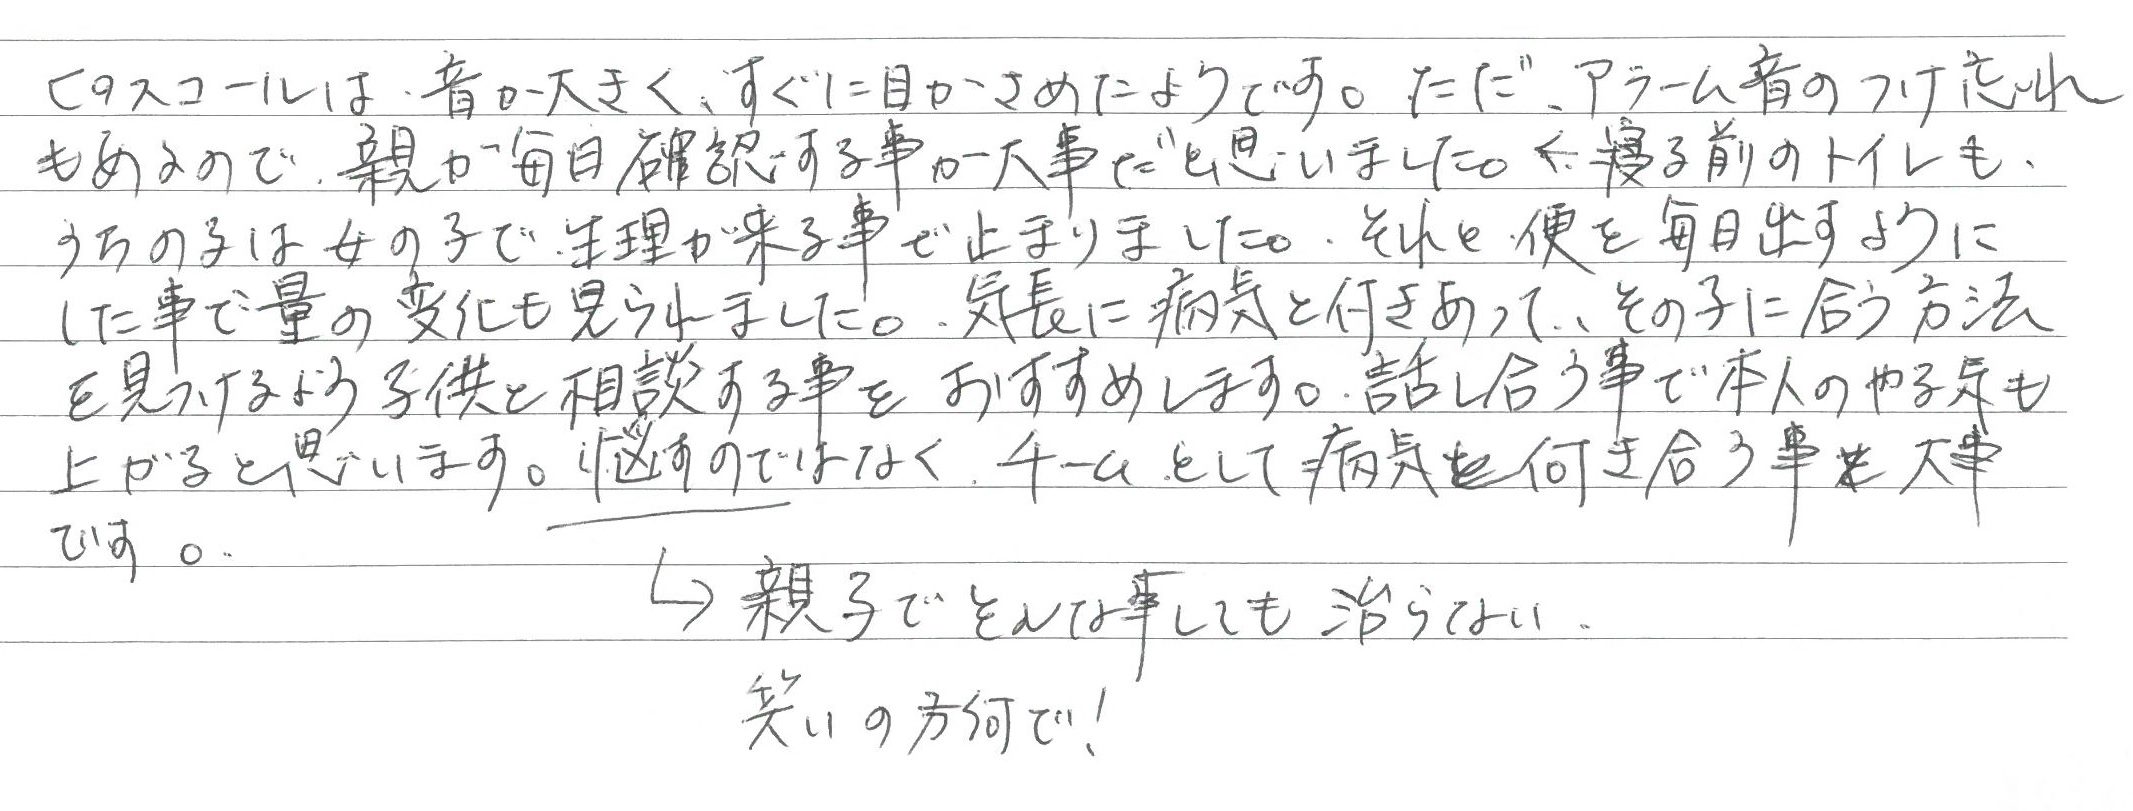 ピスコールは、音が大きく、すぐに目がさめたようです。ただ、アラーム音のつけ忘れ
もあるので、親が毎日確認する事が大事だと思いました。←寝る前のトイレも、
うちの子は女の子で、生理が来る事で止まりました。それと、便を毎日出すように
した事で量の変化も見られました。気長に病気と付きあって、その子に合う方法
を見つけるよう子供と相談する事をおすすめします。話し合う事で本人のやる気も
上がると思います。悩すのではなく、チームとして病気を付き合う事も大事
です。
↳親子でそんな事しても治らない。
笑いの方向で!